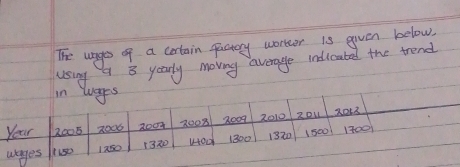 The wages of a certain factory worker is given below.
Using a 3 yearly moving average indicated the trend
in wages
Year 2005 2006 2007 2008 2009 2010 2011 2012
wages 1150 1250 1320 1400 1300 1320 1500 1700